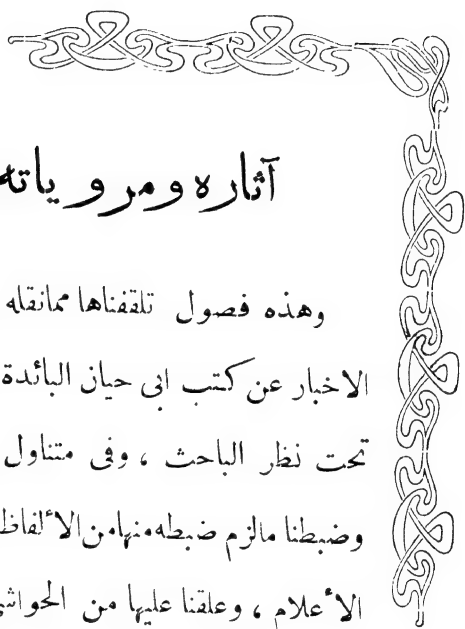 آثاره ومروياته
وهذه فصول تلقفناها مما نقله
الاخبار عن كتب ابى حيان البائدة
تحت نظر الباحث ، وفى متناول
وضبطنا مالزم ضبطه منها من الألفاظ
الأعلام ، وعلقنا عليها من